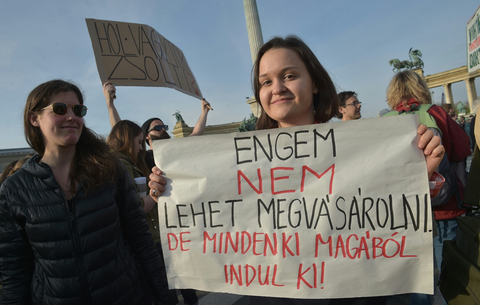 HOL VAGY
ZSOLTI?
ENGEM
NEM
LEHET MEGVÁSÁROLNI.
DE MINDENKI MAGÁBÓL
INDUL KI!